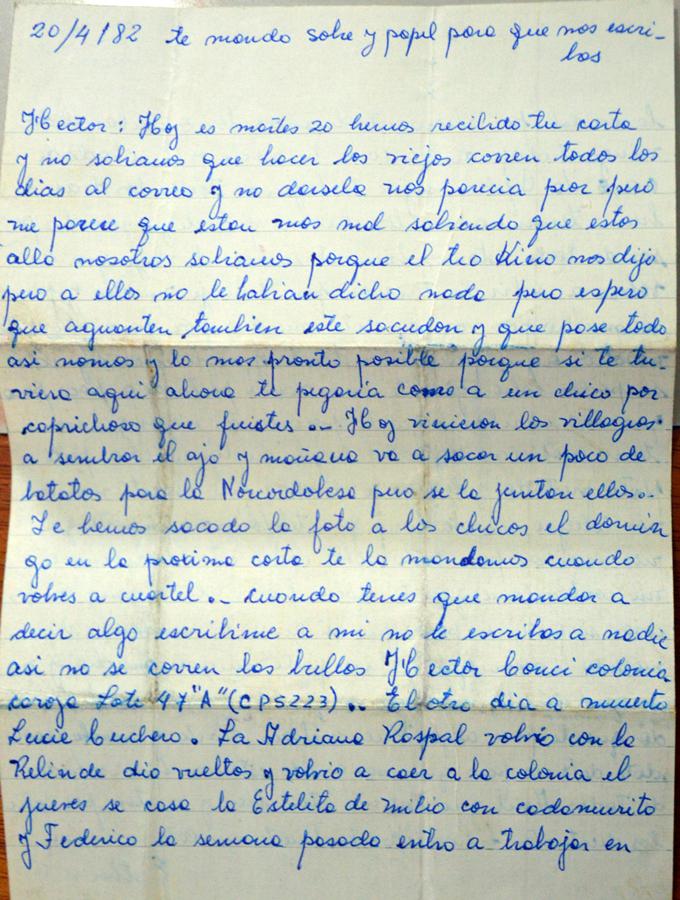 20/4/82 te mando sobre y papel para que nos escri-
bas
Hector: Hoy es martes 20 hemos recibido tu carta
y no sabiamos que hacer los viejos corren todos los
dias al correo y no darsela nos parecia peor pero
me parece que estan mas mal sabiendo que estas
alla nosotros sabiamos porque el tio Kino nos dijo
pero a ellos no le habian dicho nada pero espero
que aguanten tambien este sacudon y que pase todo
asi nomas y lo mas pronto posible porque si te tu-
viera aqui ahora te pegaria como a un chico por
caprichoso que fuistes .- Hoy vinieron los villagras
a sembrar el ajo y mañana va a sacar un poco de
batatas para la Norcordobesa pero se la juntan ellos..
Te hemos sacado la foto a los chicos el domin
go en la proxima carta te la mandamos cuando
volves a cuartel .- cuando tenes que mandar a
decir algo escribime a mi no le escribas a nadie
asi no se corren las bullas Hector Conci colonia
caroya Lote 47"A"(CP5223) .. El otro dia a muerto
Lucie . La Adriana Rospal volvio con la
Relinde dio vueltas y volvio a caer a la colonia el
jueves se casa la Estelita de milio con cadamurito
y Federico la semana pasada entro a trabajar en